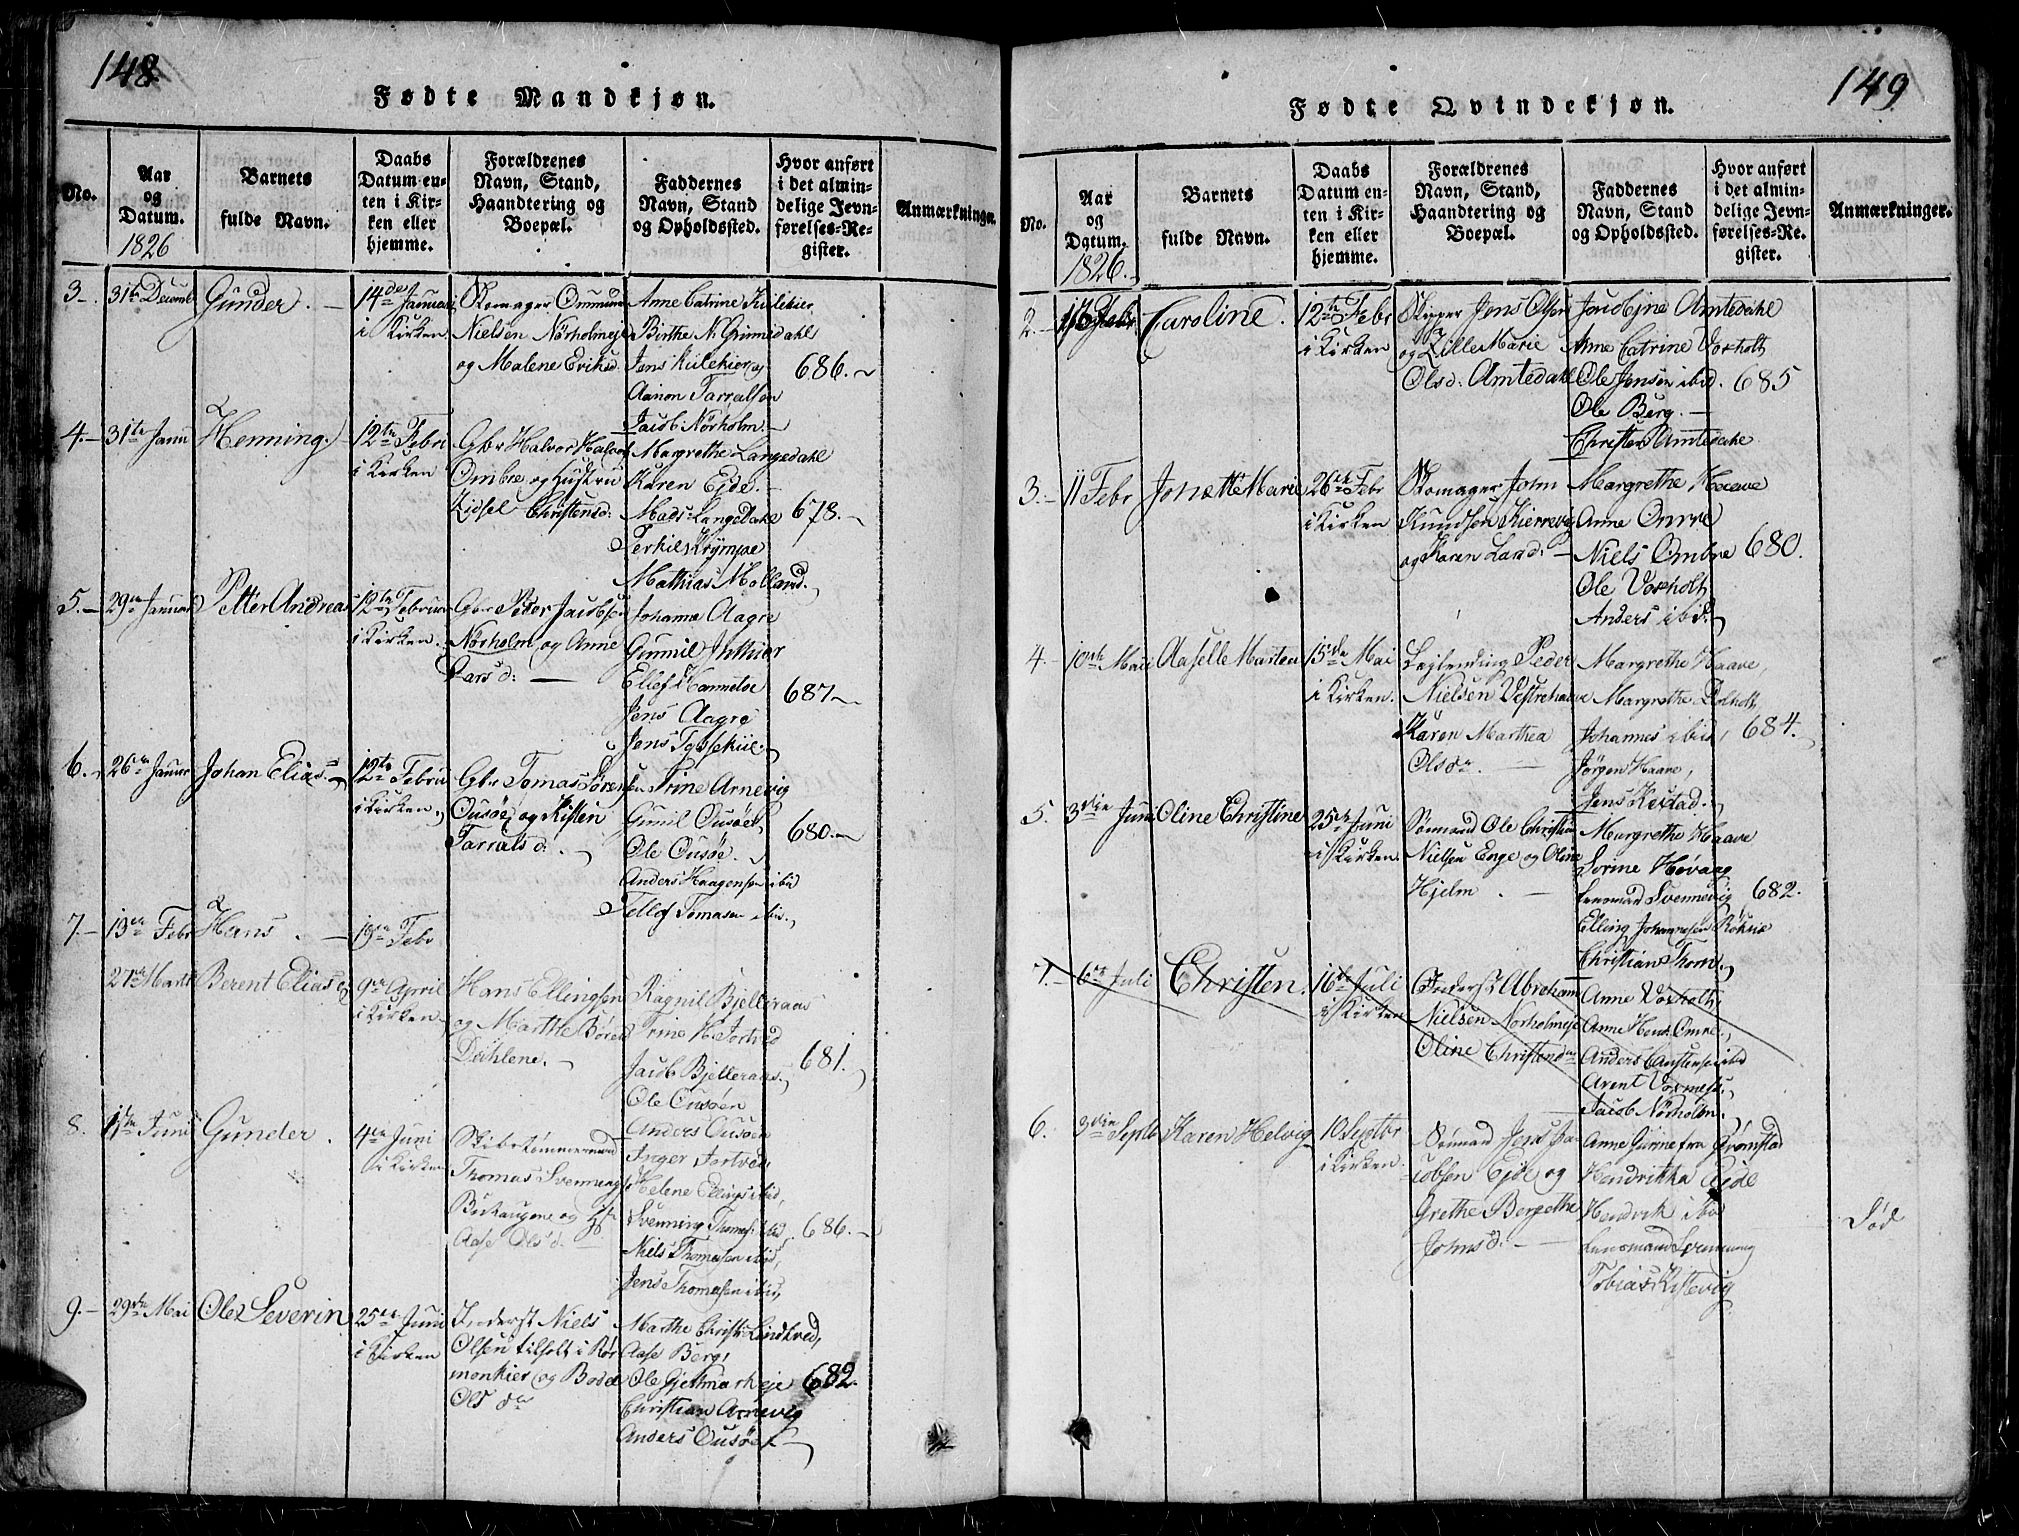 148
Fødte Mandkjøn.
No.
Aar og Datum.
1826
Barnets fulde Navn.
Daabs Datum enten i Kirken eller hjemme.
Forældrenes Navn, Stand, Haandtering og Boepæl.
Faddernes Navn, Stand og Opholdssted.
Hvor anført i det almindelige Jevnførelses-Register.
Anmærkninger.
3 31te Decemb Gunder. 14de Januar
i Kirken.
Skomager
Nielsen
og Malene Eriksd.
Anne Catrine
Birthe N. Grimedahl
Jens
Aanon Tarralsen
Jacob Nörholm.
686.
4. 31te Janu Henning. 12te Febru
i Kirken
Gbr Halvor
Ombre og Hustru
Zidsel Christensd:
Margrethe Langedahl
Karen Eide.
Mads Langedahl
Terkil
Mathias Molland.
678.
5. 29de Januar Petter Andreas 12te Februar
i Kirken.
Gbr Peder Jacobsen
Nörholm og Anne
Larsd:
Johanne Aagre
Gunnil
Ellef Hannetoe
Jens Aagre
Jens
687
6. 26de Januar Johan Elias. 12te Februar
i Kirken.
Gbr Tomas Sörensen
Ousöe og Kisten
Tarralsd.
Trine Arnevig
Gunil Ousöe
Ole Ousöe.
Anders Haagensen ibid
Tellef Tomasen ibid.
680.
7. 13de Febr Hans. 19de Febr
27de Marti Berent Elias 9de April
i Kirken
Hans Ellingsen
og Marthe
Dahlene.
Ragnil Bjelleraas
Trine H. Tortved
Jacob Bjelleraas.
Ole Ousöen
Anders Ousöen
681.
8. 1ste Juni Gunder. 4de Juni
i Kirken
Skibstömmermand
Thomas Svenningsen
og
Aase Olsd.
Inger Tortved
Helene Ellings ibid,
Svenning Thomas ibid.
Niels Thomasen ibid,
Jens Thomasen ibid,
686.
9. 29de Mai Ole Severin 25de Juni
i Kirken
Inderst Niels
Olsen tilholt i
og Bodel
Ols dr
Marthe Christi Lindtved,
Aase Berg,
Ole Gjetmarkeje
Christian Arnevig
Anders Ousöe
682.
149
Fødte Qvindekjøn.
No.
Aar og Datum.
1826.
Barnets fulde Navn.
Daabs Datum enten i Kirken eller hjemme.
Forældrenes Navn, Stand, Haandtering og Boepæl.
Faddernes Navn, Stand og Opholdssted.
Hvor anført i det almindelige Jevnførelses-Register.
Anmærkninger.
2. Febr. Caroline. 12te Febr
i Kirken
Skipper Jens Olsen
og Zille Marie
Olsd: Amtedahl
Amtedahl
Anne Catrine Voxholt
Ole Jensen ibid.
Ole Berg.
Christen Amtedahl
685
3. 11 Febr Jonette Marie 26de Febr
i Kirken
Skomager John
Knudsen
og Karen Land:
Margrethe Haave
Anne Omre
Niels Ombre
Ole Voxholt
Anders ibid.
680.
4. 10de Mai Aaselle Marten 15de Mai
i Kirken.
Lejlending Peder
Nielsen Vestrehaave
Karen Marthea
Olsdr.
Margrethe Haave,
Margrethe
Johannes ibid,
Jörgen Haave,
Jens
684.
5. 3die Juni Oline Christine 25de Juni
i Kirken
Sömand Ole Christian
Nielsen Enge og Oline
Hjelm.
Margrethe Haave
Sorine Hövaag
Lensmand Svennevig
Elling Johannesen
Christian Thom
682.
7. 6te Juli Christen. 16de Juli
i Kirken
Inderst Abraham
Nielsen Norholmeje
Oline Christensdr
Anne Voxholt,
Anne Hens. Omre,
Anders Carstensen ibid
Arent
Jacob Nörholm.
6. 3die Septb Karen Helvig 10 Septbr
i Kirken.
Sömand Jens Jacobsen Eide og
Grethe Bergethe
Johnsd.
Anne Gurine fra Grömstad
Hendrikka Eide
Hendrik ibid
Lensmand Svennevig
Tobias Kistevig
Död